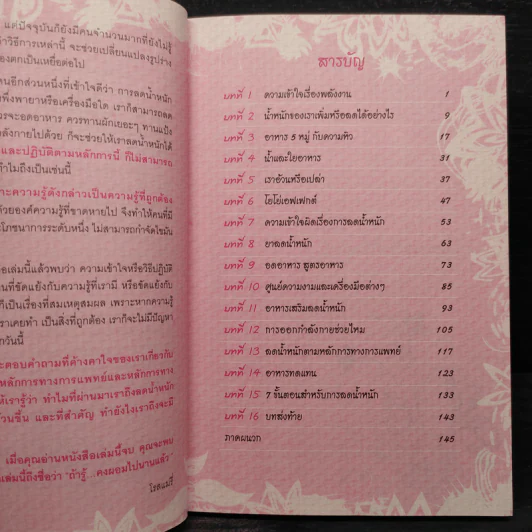 แต่ปัจจุบันก็ยังมีคนจำนวนมากที่ยังไม่รู้
วิธีการเหล่านี้ จะช่วยเปลี่ยนแปลงรูปร่าง
ตกเป็นเหยื่อต่อไป
คนอีกส่วนหนึ่งที่เข้าใจดีว่า การลดน้ำหนัก
พึ่งพายาหรือเครื่องมือใด เราก็สามารถลด
ควรจะอดอาหาร ควรทานผักเยอะๆ ทานแป้ง
ลังกายไปด้วย ก็จะช่วยให้เราลดน้ำหนักได้
และปฏิบัติตามหลักการนี้ ก็ไม่สามารถ
ทำไมถึงเป็นเช่นนี้
ะความรู้ดังกล่าวเป็นความรู้ที่ถูกต้อง
ด้วยองค์ความรู้ที่ขาดหายไป จึงทำให้คนที่มี
โภชนาการระดับหนึ่ง ไม่สามารถกำจัดไขมัน
เล่มนี้แล้วพบว่า ความเข้าใจหรือวิธีปฏิบัติ
ที่ขัดแย้งกับความรู้ที่เรามี หรือขัดแย้งกับ
เป็นเรื่องที่สมเหตุสมผล เพราะหากความรู้
เราเคยทำ เป็นสิ่งที่ถูกต้อง เราก็จะไม่มีปัญหา
กวันนี้
ตอบคำถามที่ค้างคาใจของเราเกี่ยวกับ
หลักการทางการแพทย์และหลักการทาง
ให้เรารู้ว่า ทำไมที่ผ่านมาเราถึงลดน้ำหนัก
อ้วนขึ้น และที่สำคัญ ทำยังไงเราถึงจะมี
เมื่อคุณอ่านหนังสือเล่มนี้จบ คุณจะพบ
เล่มนี้ถึงชื่อว่า "ถ้ารู้...คงผอมไปนานแล้ว"
โรสแมรี่
สารบัญ
บทที่ 1 ความเข้าใจเรื่องพลังงาน 1
บทที่ 2 น้ำหนักของเราเพิ่มหรือลดได้อย่างไร 9
บทที่ 3 อาหาร 5 หมู่ กับความหิว 17
บทที่ 4 น้ำและใยอาหาร 31
บทที่ 5 เราอ้วนหรือเปล่า 37
บทที่ 6 โยโย่เอฟเฟกต์ 47
บทที่ 7 ความเข้าใจผิดเรื่องการลดน้ำหนัก 53
บทที่ 8 ยาลดน้ำหนัก 63
บทที่ 9 อดอาหาร สูตรอาหาร 73
บทที่ 10 ศูนย์ความงามและเครื่องมือต่างๆ 85
บทที่ 11 อาหารเสริมลดน้ำหนัก 93
บทที่ 12 การออกกำลังกายช่วยไหม 105
บทที่ 13 ลดน้ำหนักตามหลักการทางการแพทย์ 117
บทที่ 14 อาหารทดแทน 123
บทที่ 15 7 ขั้นตอนสำหรับการลดน้ำหนัก 133
บทที่ 16 บทส่งท้าย 143
ภาคผนวก 145